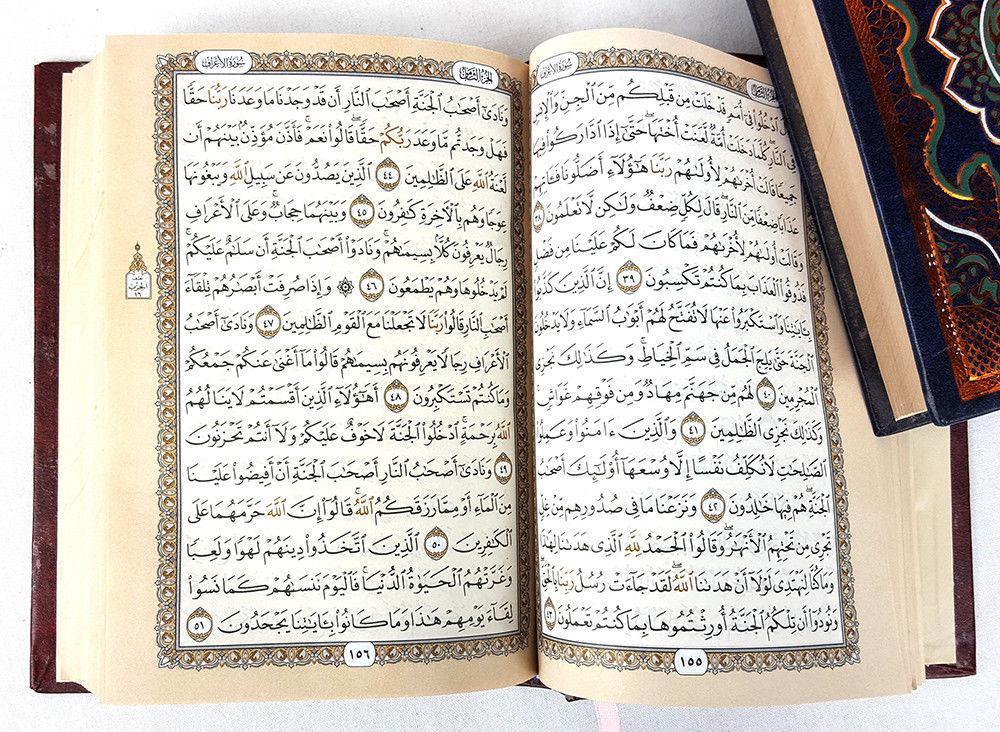 سورة الأعراف
الجزء الثامن
قَالَ ٱدْخُلُوا۟ فِىٓ أُمَمٍ قَدْ خَلَتْ مِن قَبْلِكُم مِّنَ ٱلْجِنِّ وَٱلْإِنسِ
فِى ٱلنَّارِ ۖ كُلَّمَا دَخَلَتْ أُمَّةٌ لَّعَنَتْ أُخْتَهَا ۖ حَتَّىٰٓ إِذَا ٱدَّارَكُوا۟ فِيهَا
جَمِيعًا قَالَتْ أُخْرَىٰهُمْ لِأُولَىٰهُمْ رَبَّنَا هَـٰٓؤُلَآءِ أَضَلُّونَا فَـَٔاتِهِمْ
عَذَابًا ضِعْفًا مِّنَ ٱلنَّارِ ۖ قَالَ لِكُلٍّ ضِعْفٌ وَلَـٰكِن لَّا تَعْلَمُونَ ٣٨
وَقَالَتْ أُولَىٰهُمْ لِأُخْرَىٰهُمْ فَمَا كَانَ لَكُمْ عَلَيْنَا مِن فَضْلٍ
فَذُوقُوا۟ ٱلْعَذَابَ بِمَا كُنتُمْ تَكْسِبُونَ ٣٩ إِنَّ ٱلَّذِينَ كَذَّبُوا۟
بِـَٔايَـٰتِنَا وَٱسْتَكْبَرُوا۟ عَنْهَا لَا تُفَتَّحُ لَهُمْ أَبْوَٰبُ ٱلسَّمَآءِ وَلَا يَدْخُلُونَ
ٱلْجَنَّةَ حَتَّىٰ يَلِجَ ٱلْجَمَلُ فِى سَمِّ ٱلْخِيَاطِ ۚ وَكَذَٰلِكَ نَجْزِى
ٱلْمُجْرِمِينَ ٤٠ لَهُم مِّن جَهَنَّمَ مِهَادٌ وَمِن فَوْقِهِمْ غَوَاشٍ ۚ
وَكَذَٰلِكَ نَجْزِى ٱلظَّـٰلِمِينَ ٤١ وَٱلَّذِينَ ءَامَنُوا۟ وَعَمِلُوا۟
ٱلصَّـٰلِحَـٰتِ لَا نُكَلِّفُ نَفْسًا إِلَّا وُسْعَهَآ أُو۟لَـٰٓئِكَ أَصْحَـٰبُ
ٱلْجَنَّةِ ۖ هُمْ فِيهَا خَـٰلِدُونَ ٤٢ وَنَزَعْنَا مَا فِى صُدُورِهِم مِّنْ غِلٍّ
تَجْرِى مِن تَحْتِهِمُ ٱلْأَنْهَـٰرُ ۖ وَقَالُوا۟ ٱلْحَمْدُ لِلَّهِ ٱلَّذِى هَدَىٰنَا لِهَـٰذَا
وَمَا كُنَّا لِنَهْتَدِىَ لَوْلَآ أَنْ هَدَىٰنَا ٱللَّهُ ۖ لَقَدْ جَآءَتْ رُسُلُ رَبِّنَا بِٱلْحَقِّ ۖ
وَنُودُوٓا۟ أَن تِلْكُمُ ٱلْجَنَّةُ أُورِثْتُمُوهَا بِمَا كُنتُمْ تَعْمَلُونَ ٤٣
١٥٥
سورة الأعراف
الجزء الثامن
وَنَادَىٰٓ أَصْحَـٰبُ ٱلْجَنَّةِ أَصْحَـٰبَ ٱلنَّارِ أَن قَدْ وَجَدْنَا مَا وَعَدَنَا رَبُّنَا حَقًّا
فَهَلْ وَجَدتُّم مَّا وَعَدَ رَبُّكُمْ حَقًّا ۖ قَالُوا۟ نَعَمْ ۚ فَأَذَّنَ مُؤَذِّنٌۢ بَيْنَهُمْ أَن
لَّعْنَةُ ٱللَّهِ عَلَى ٱلظَّـٰلِمِينَ ٤٤ ٱلَّذِينَ يَصُدُّونَ عَن سَبِيلِ ٱللَّهِ وَيَبْغُونَهَا
عِوَجًا وَهُم بِٱلْـَٔاخِرَةِ كَـٰفِرُونَ ٤٥ وَبَيْنَهُمَا حِجَابٌ ۚ وَعَلَى ٱلْأَعْرَافِ
رِجَالٌ يَعْرِفُونَ كُلًّۢا بِسِيمَىٰهُمْ ۚ وَنَادَوْا۟ أَصْحَـٰبَ ٱلْجَنَّةِ أَن سَلَـٰمٌ عَلَيْكُمْ ۚ
لَمْ يَدْخُلُوهَا وَهُمْ يَطْمَعُونَ ٤٦ ۞ وَإِذَا صُرِفَتْ أَبْصَـٰرُهُمْ تِلْقَآءَ
أَصْحَـٰبِ ٱلنَّارِ قَالُوا۟ رَبَّنَا لَا تَجْعَلْنَا مَعَ ٱلْقَوْمِ ٱلظَّـٰلِمِينَ ٤٧ وَنَادَىٰٓ أَصْحَـٰبُ
ٱلْأَعْرَافِ رِجَالًا يَعْرِفُونَهُم بِسِيمَىٰهُمْ قَالُوا۟ مَآ أَغْنَىٰ عَنكُمْ جَمْعُكُمْ
وَمَا كُنتُمْ تَسْتَكْبِرُونَ ٤٨ أَهَـٰٓؤُلَآءِ ٱلَّذِينَ أَقْسَمْتُمْ لَا يَنَالُهُمُ
ٱللَّهُ بِرَحْمَةٍ ۚ ٱدْخُلُوا۟ ٱلْجَنَّةَ لَا خَوْفٌ عَلَيْكُمْ وَلَآ أَنتُمْ تَحْزَنُونَ
٤٩ وَنَادَىٰٓ أَصْحَـٰبُ ٱلنَّارِ أَصْحَـٰبَ ٱلْجَنَّةِ أَنْ أَفِيضُوا۟ عَلَيْنَا
مِنَ ٱلْمَآءِ أَوْ مِمَّا رَزَقَكُمُ ٱللَّهُ ۚ قَالُوٓا۟ إِنَّ ٱللَّهَ حَرَّمَهُمَا عَلَى
ٱلْكَـٰفِرِينَ ٥٠ ٱلَّذِينَ ٱتَّخَذُوا۟ دِينَهُمْ لَهْوًا وَلَعِبًا
وَغَرَّتْهُمُ ٱلْحَيَوٰةُ ٱلدُّنْيَا ۚ فَٱلْيَوْمَ نَنسَىٰهُمْ كَمَا نَسُوا۟
لِقَآءَ يَوْمِهِمْ هَـٰذَا وَمَا كَانُوا۟ بِـَٔايَـٰتِنَا يَجْحَدُونَ ٥١
١٥٦
نصف
الحزب
١٦